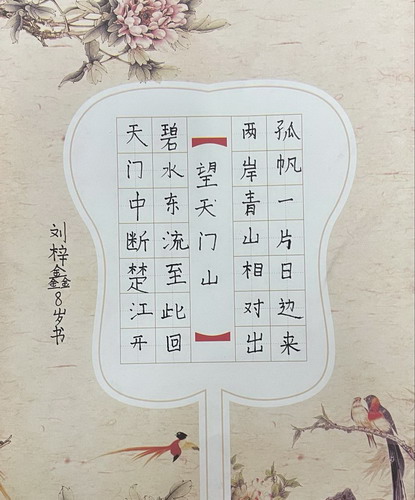 【望天门山】
天门中断楚江开
碧水东流至此回
两岸青山相对出
孤帆一片日边来
刘梓鑫8岁书